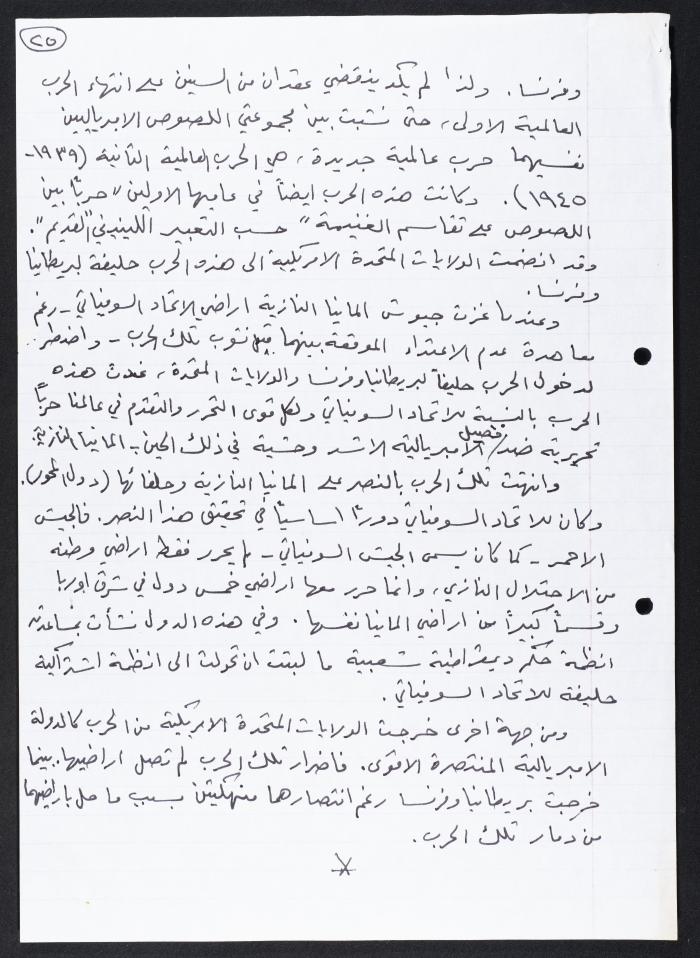 ٢٥
وفرنسا. ولذا لم يكد ينقضي عقدان من السنين على انتهاء الحرب
العالمية الاولى، حتى نشبت بين مجموعتي اللصوص الامبرياليين
نفسيهما حرب عالمية جديدة، هي الحرب العالمية الثانية (١٩٣٩-
١٩٤٥). وكانت هذه الحرب ايضاً في عاميها الاولين "حرباً بين
اللصوص على تقاسم الغنيمة" حسب التعبير اللينيني "القديم".
وقد انضمت الولايات المتحدة الامريكية الى هذه الحرب حليفة لبريطانيا
وفرنسا.
وعندما غزت جيوش المانيا النازية اراضي الاتحاد السوفياتي - رغم
معاهدة عدم الاعتداء الموقعة بينهما قبل نشوب تلك الحرب - واضطر
لدخول الحرب حليفاً لبريطانيا وفرنسا والولايات المتحدة، غدت هذه
الحرب بالنسبة للاتحاد السوفياتي ولكل قوى التحرر والتقدم في عالمنا حرباً
تحريرية ضد فصيل الامبريالية الاشد وحشية في ذلك الحين - المانيا النازية.
وانتهت تلك الحرب بالنصر على المانيا النازية وحلفائها (دول المحور).
وكان للاتحاد السوفياتي دوراً اساسياً في تحقيق هذا النصر. فالجيش
الاحمر - كما كان يسمى الجيش السوفياتي - لم يحرر فقط اراضي وطنه
من الاحتلال النازي، وانما حرر معها اراضي خمس دول في شرق اوربا
وقسماً كبيراً من اراضي المانيا نفسها. وفي هذه الدول نشأت بمساعدته
انظمة حكم ديمقراطية شعبية ما لبثت ان تحولت الى انظمة اشتراكية
حليفة للاتحاد السوفياتي.
ومن جهة اخرى خرجت الولايات المتحدة الامريكية من الحرب كالدولة
الامبريالية المنتصرة الاقوى. فاضرار تلك الحرب لم تصل اراضيها. بينما
خرجت بريطانيا وفرنسا رغم انتصارهما منهكتين بسبب ما حل باراضيهما
من دمار تلك الحرب.